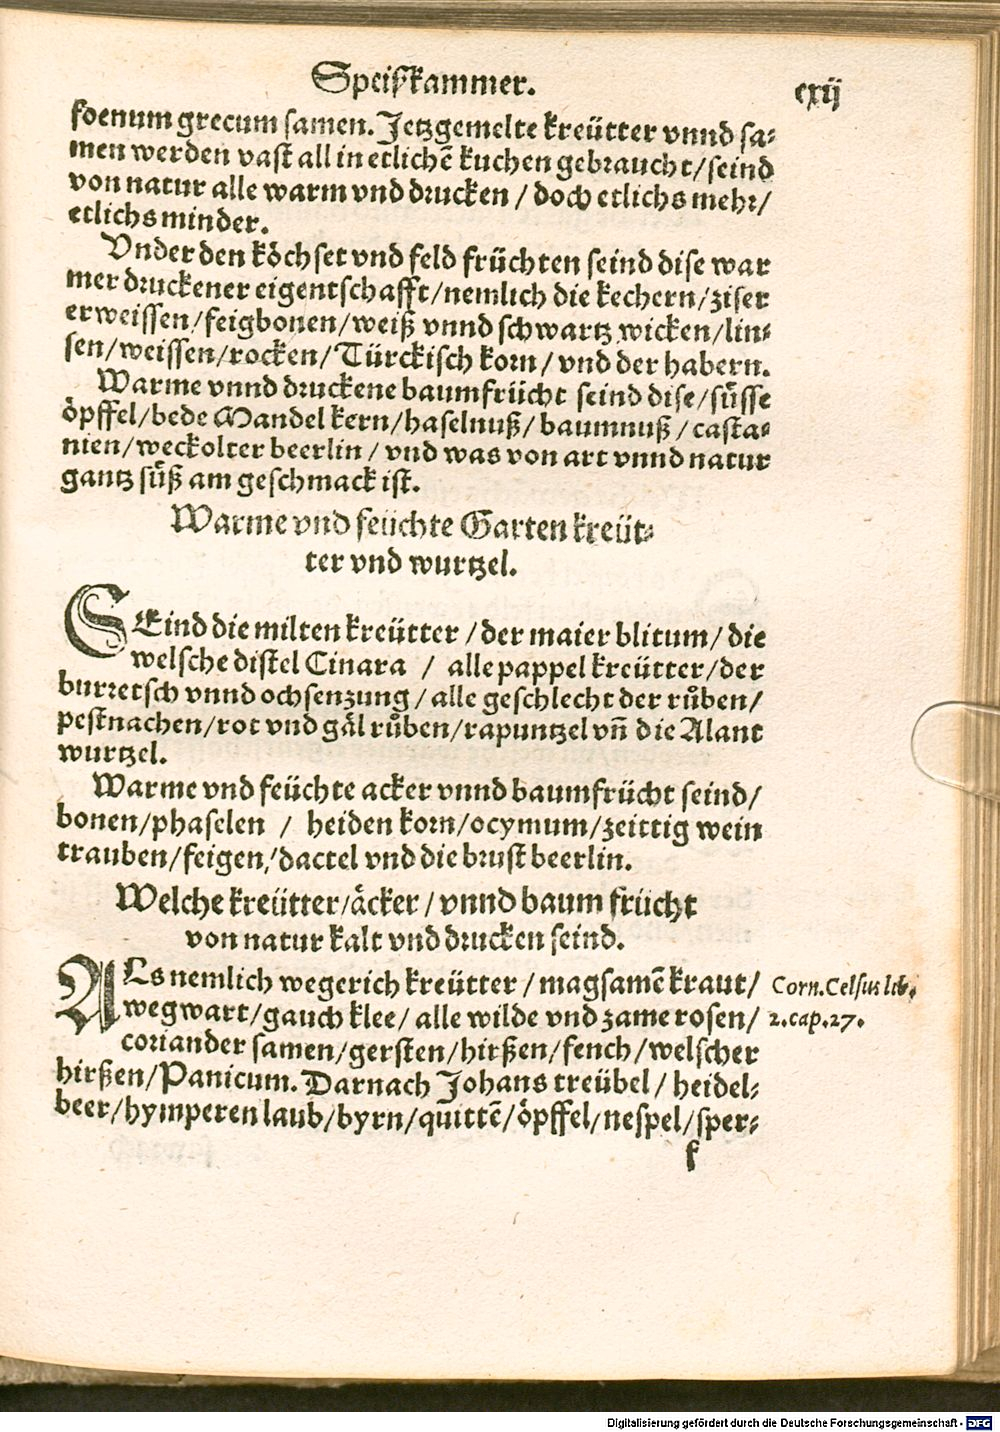 Speiſzkammer.
cxij
foenum grecum ſamen. Jetzgemelte kreütter vnnd ſa-
men werden vaſt all in etlichē kuchen gebraucht/ſeind
von natur alle warm vnd drucken / doch etlichs mehr/
etlichs minder.
Vnder den köchſet vnd feld früchten ſeind diſe war
mer druckener eigentſchafft/nemlich die kechern/ziſer
erweiſſen/feigbonen/weiß vnnd ſchwartz wicken/lin-
ſen/weiſſen/rocken/Türckiſch korn/ vnd der habern.
Warme vnnd druckene baumfrücht ſeind diſe/ſüſſe
öpffel/bede Mandel kern/haſelnuß/ baumnuß / caſta-
nien/weckolter beerlin / vnd was von art vnnd natur
gantz ſüß am geſchmack iſt.
Warme vnd feüchte Garten kreüt-
ter vnd wurtzel.
SEind die milten kreütter / der maier blitum/ die
welſche diſtel Cinara / alle pappel kreütter/der
burretſch vnnd ochſenzung / alle geſchlecht der růben/
peſtnachen/rot vnd gäl růben/rapuntzel vñ die Alant
wurtzel.
Warme vnd feüchte acker vnnd baumfrücht ſeind/
bonen/phaſelen / heiden korn/ocymum/zeittig wein
trauben/feigen/dactel vnd die bruſt beerlin.
Welche kreütter/äcker / vnnd baum frücht
von natur kalt vnd drucken ſeind.
ALs nemlich wegerich kreütter / magſamē kraut/
Corn.Celſus lib.
wegwart/gauch klee/ alle wilde vnd zame roſen/
2.cap.27.
coriander ſamen/gerſten/hirßen/fench/welſcher
hirßen/Panicum. Darnach Johans treübel / heidel-
beer/hymperen laub/byrn/quittē/öpffel/neſpel/ſper-
k
Digitalisierung gefördert durch die Deutsche Forschungsgemeinschaft - DFG